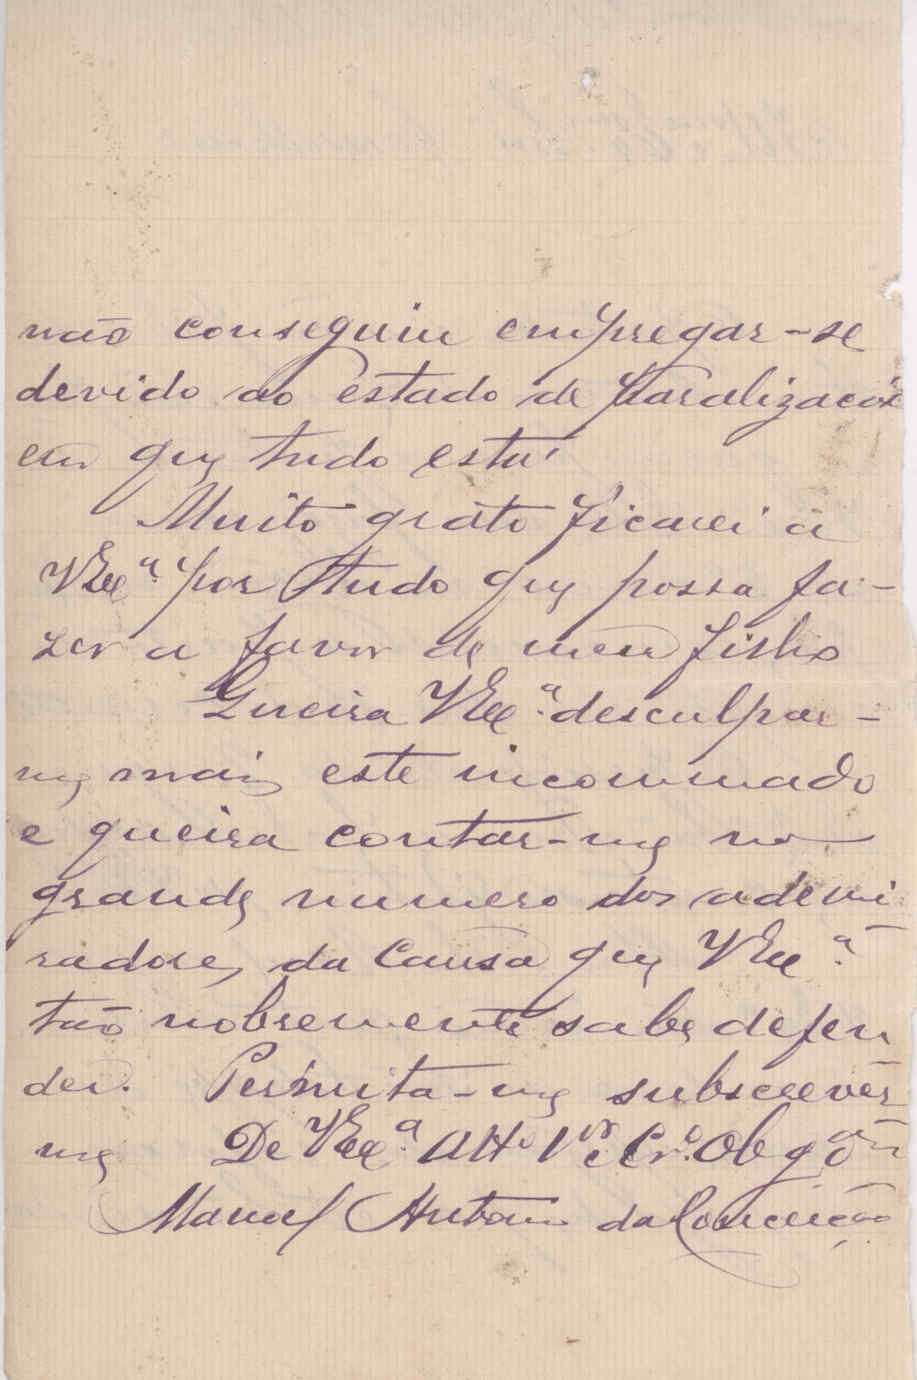 não conseguiu empregar-se
devido ao estado de paralização
em que tudo está
Muito grato ficarei a
VExª. por tudo que possa fa-
zer a favor de meu filho
Queira VExª. desculpar-
me mais este incommodo
e queira contar-me no
grande numero dos ademi
radores da causa que VExª.
tão nobremente sabe defen
der. Permita-me subscrever
me De VExª. Attº Vor e Crº. Obgº
Manoel Antonio da Conceição